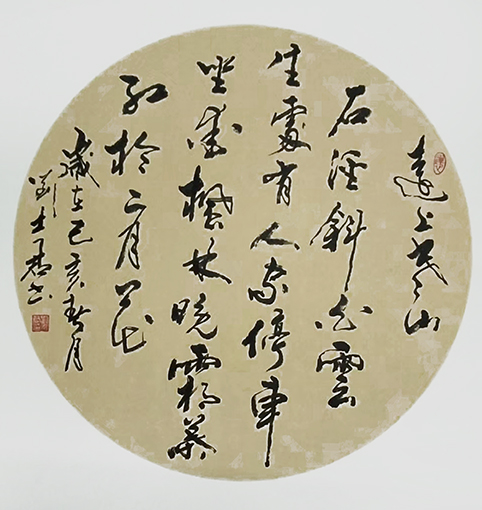 遠上寒山
石徑斜白雲
生處有人家停車
坐愛楓林晚霜葉
紅於二月花
歲在己亥秋月
劉士書